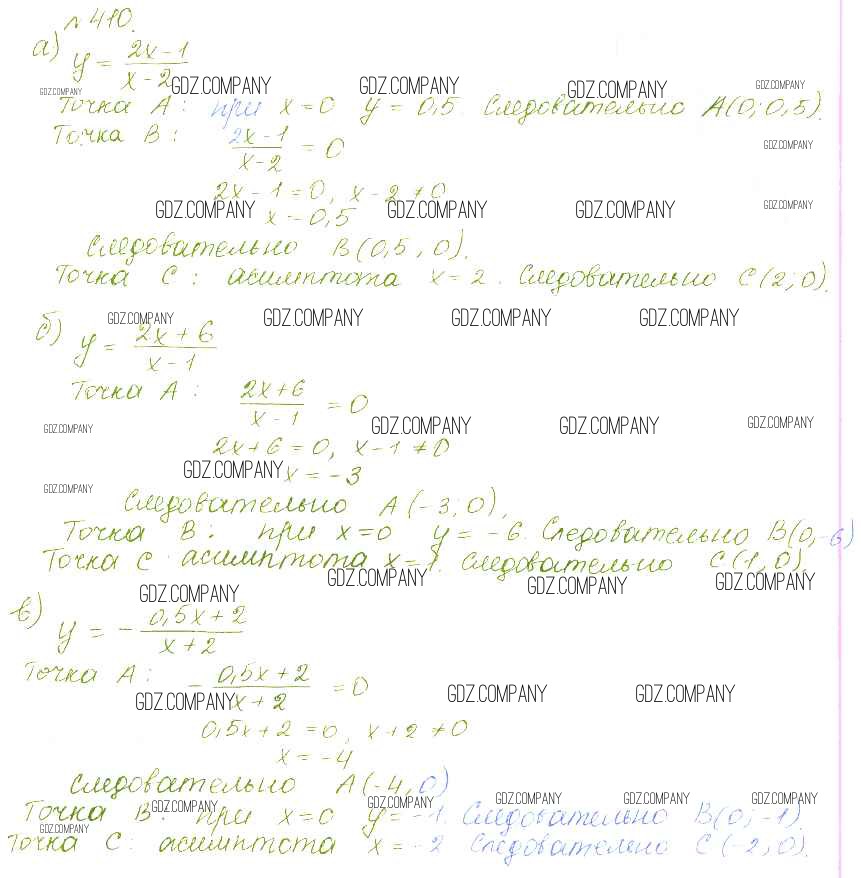 №410.
а) y = (2x-1)/(x-2)
GDZ.COMPANY GDZ.COMPANY GDZ.COMPANY GDZ.COMPANY GDZ.COMPANY
Точка A: при x=0 y=0,5. Следовательно A(0;0,5).
Точка B: (2x-1)/(x-2) = 0
GDZ.COMPANY
2x-1=0, x-2≠0
GDZ.COMPANY GDZ.COMPANY GDZ.COMPANY GDZ.COMPANY
x=0,5
Следовательно B(0,5;0).
Точка C: асимптота x=2. Следовательно C(2;0).
GDZ.COMPANY GDZ.COMPANY GDZ.COMPANY GDZ.COMPANY
б) y = (2x+6)/(x-1)
Точка A: (2x+6)/(x-1) = 0
GDZ.COMPANY GDZ.COMPANY GDZ.COMPANY GDZ.COMPANY
2x+6=0, x-1≠0
GDZ.COMPANY x=-3
GDZ.COMPANY
Следовательно A(-3;0),
Точка B: при x=0 y=-6. Следовательно B(0,-6)
Точка C асимптота x=1. Следовательно C(1,0)
GDZ.COMPANY GDZ.COMPANY GDZ.COMPANY GDZ.COMPANY
в) y = -(0,5x+2)/(x+2)
Точка A: -(0,5x+2)/(x+2) = 0
GDZ.COMPANY GDZ.COMPANY GDZ.COMPANY
0,5x+2=0, x+2≠0
x=-4
Следовательно A(-4,0)
GDZ.COMPANY GDZ.COMPANY GDZ.COMPANY GDZ.COMPANY GDZ.COMPANY
Точка B: при x=0 y=-1. Следовательно B(0;-1).
GDZ.COMPANY
Точка C: асимптота x=-2 Следовательно C(-2,0).